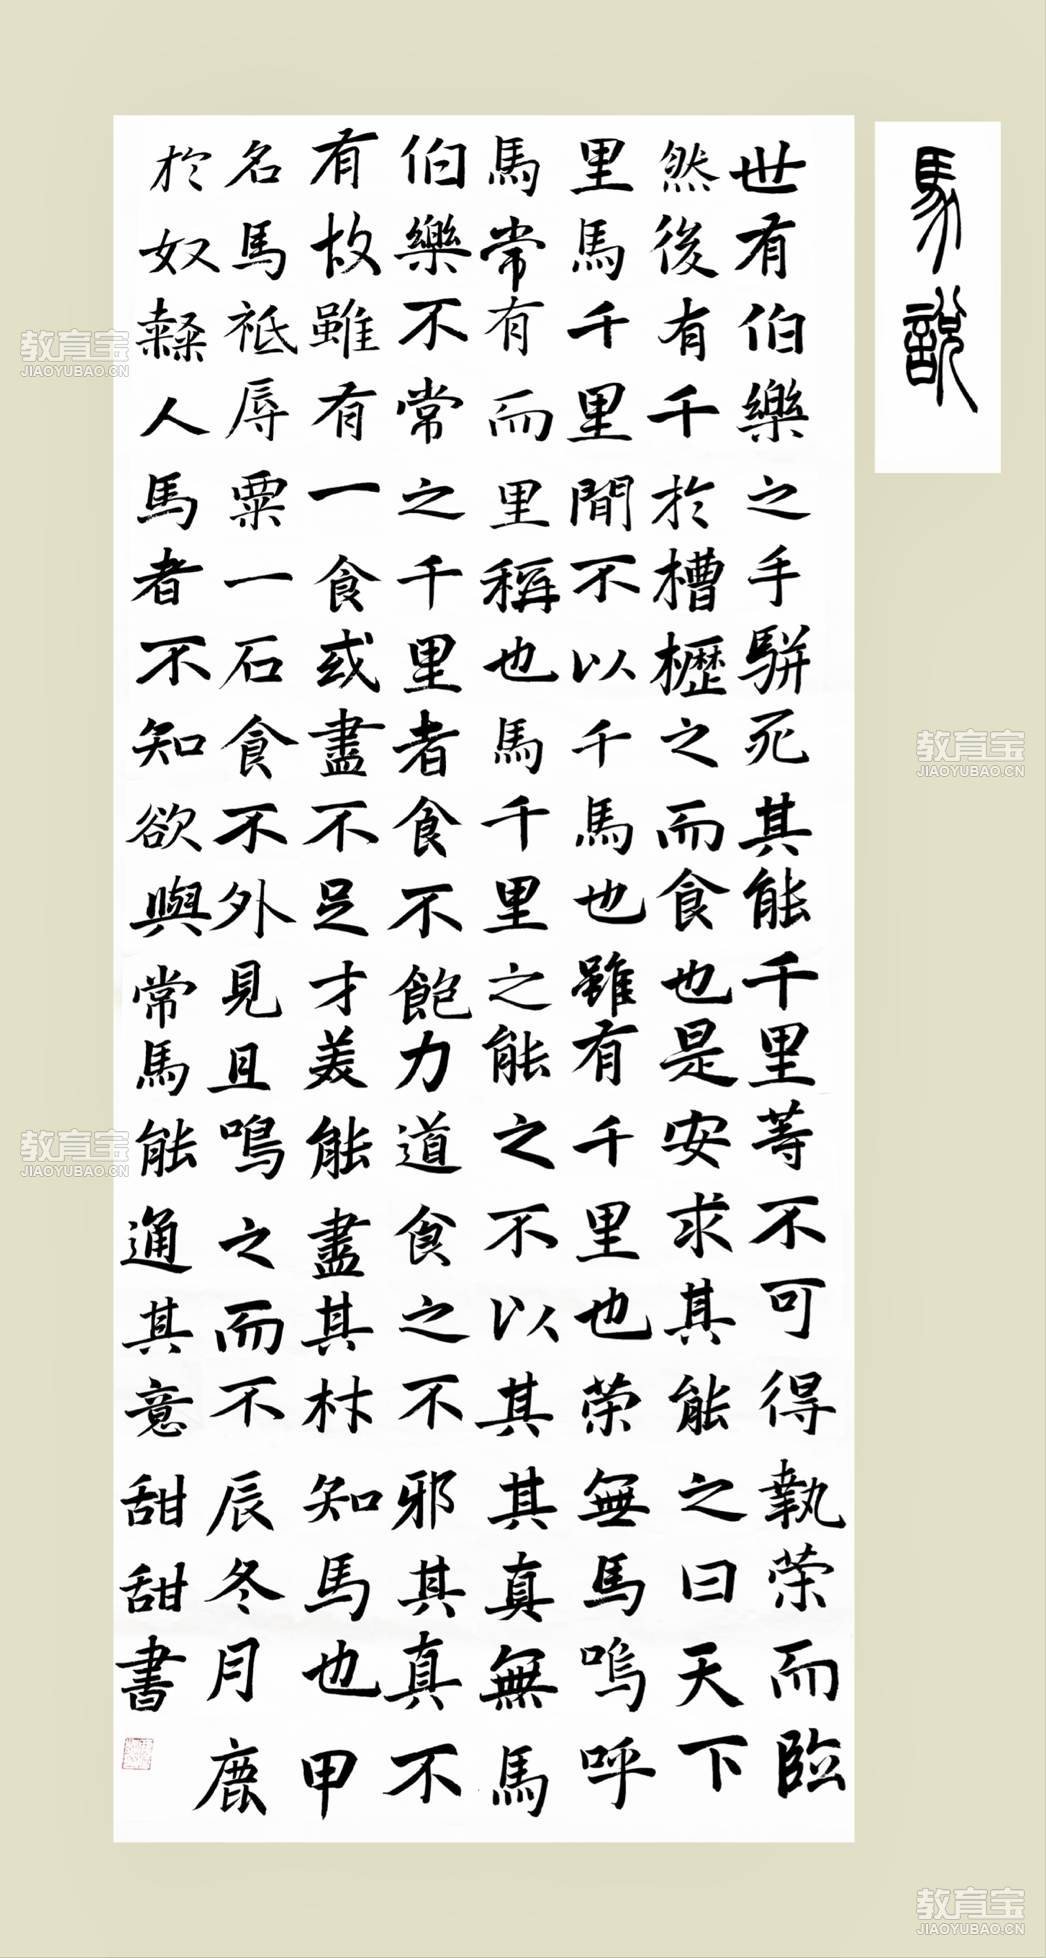 馬說
世有伯樂之手駢死其能千里等不可得執策而臨
然後有千於槽櫪之而食也是安求其能之曰天下
里馬千里間不以千馬也雖有千里也策無馬嗚呼
馬常有而里稱也馬千里之能之不以其其真無馬
伯樂不常之千里者食不飽力道食之不邪其真不
有故雖有一食或盡不足才美能盡其材知馬也甲
名馬祗辱粟一石食不外見且鳴之而不辰冬月鹿
於奴隸人馬者不知欲與常馬能通其意甜甜書
教育宝
JIAOYUBAO.CN
教育宝
JIAOYUBAO.CN
教育宝
JIAOYUBAO.CN
教育宝
JIAOYUBAO.CN